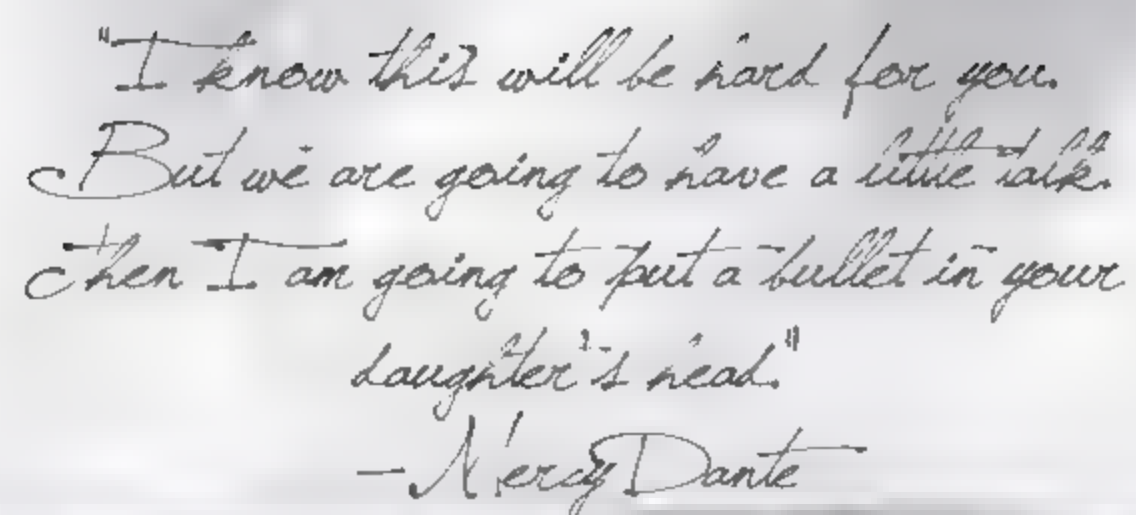 "I know this will be hard for you.
But we are going to have a little talk.
Then I am going to put a bullet in your
daughter's head."
— Nercy Dante